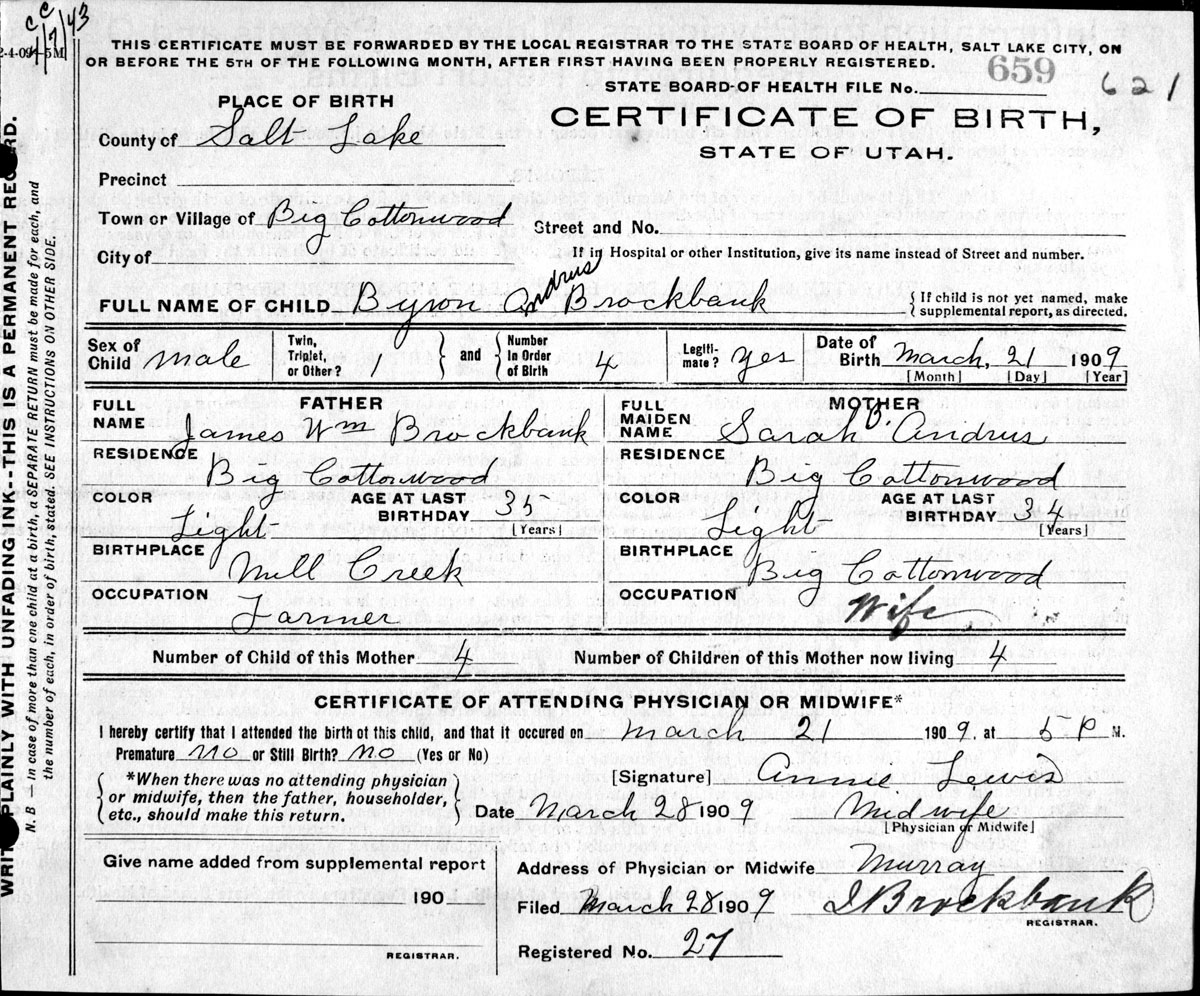 C C
4/7/43
2-4-09-5M
THIS CERTIFICATE MUST BE FORWARDED BY THE LOCAL REGISTRAR TO THE STATE BOARD OF HEALTH, SALT LAKE CITY, ON
OR BEFORE THE 5TH OF THE FOLLOWING MONTH, AFTER FIRST HAVING BEEN PROPERLY REGISTERED.
659
STATE BOARD OF HEALTH FILE No.
621
PLACE OF BIRTH
CERTIFICATE OF BIRTH,
STATE OF UTAH.
County of Salt Lake
Precinct
Town or Village of Big Cottonwood
Street and No.
City of
If in Hospital or other Institution, give its name instead of Street and number.
FULL NAME OF CHILD Byron Andrus Brockbank
{ If child is not yet named, make
supplemental report, as directed.
Sex of Child male
Twin, Triplet, or Other? 1 } and { Number In Order of Birth 4
Legitimate? yes
Date of Birth March, 21 1909
[Month] [Day] [Year]
FATHER
FULL NAME James Wm Brockbank
RESIDENCE Big Cottonwood
COLOR Light
AGE AT LAST BIRTHDAY 35 [Years]
BIRTHPLACE Mill Creek
OCCUPATION Farmer
MOTHER
FULL MAIDEN NAME Sarah B. Andrus
RESIDENCE Big Cottonwood
COLOR Light
AGE AT LAST BIRTHDAY 34 [Years]
BIRTHPLACE Big Cottonwood
OCCUPATION Wife
Number of Child of this Mother 4
Number of Children of this Mother now living 4
CERTIFICATE OF ATTENDING PHYSICIAN OR MIDWIFE*
I hereby certify that I attended the birth of this child, and that it occured on March 21 1909, at 5 P M.
Premature no or Still Birth? no (Yes or No)
{ *When there was no attending physician
or midwife, then the father, householder,
etc., should make this return. }
[Signature] Annie Lewis
Date March 28 1909 Midwife
[Physician or Midwife]
Give name added from supplemental report
190
REGISTRAR.
Address of Physician or Midwife Murray
Filed March 28 1909 J Brockbank
REGISTRAR.
Registered No. 27
WRITE PLAINLY WITH UNFADING INK--THIS IS A PERMANENT RECORD.
N. B — In case of more than one child at a birth, a SEPARATE RETURN must be made for each, and
the number of each, in order of birth, stated. SEE INSTRUCTIONS ON OTHER SIDE.